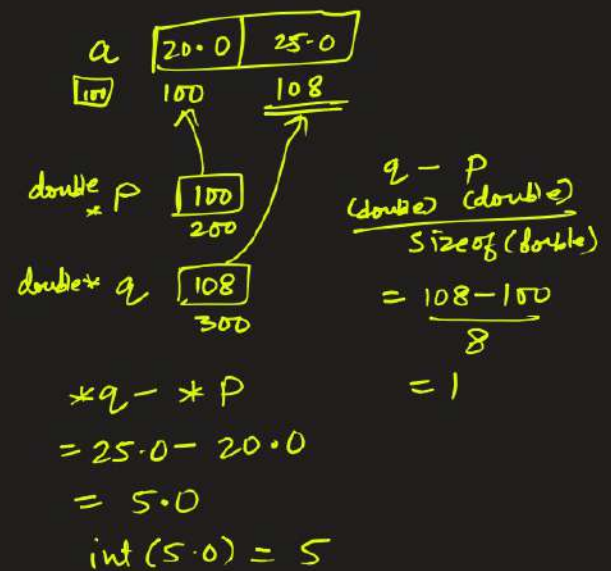 a 20.0 25.0
100 100 108
double * p 100
200
double* q 108
300
*q - *p
= 25.0 - 20.0
= 5.0
int (5.0) = 5
q - p
(double) (double)
sizeof (double)
= 108-100
8
= 1